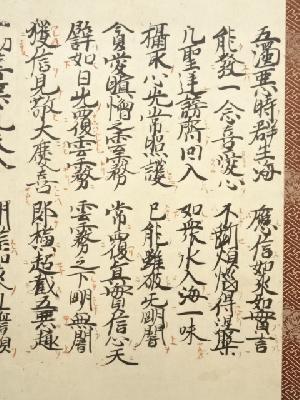 五濁悪時群生海 應信如来如實言
能發一念喜愛心 不断煩惱得涅槃
凡聖逆謗斉回入 如衆水入海一味
攝取心光常照護 已能雖破无明闇
貪愛瞋憎之雲霧 常覆真實信心天
譬如日光覆雲霧 雲霧之下明無闇
獲信見敬大慶喜 即横超截五悪趣